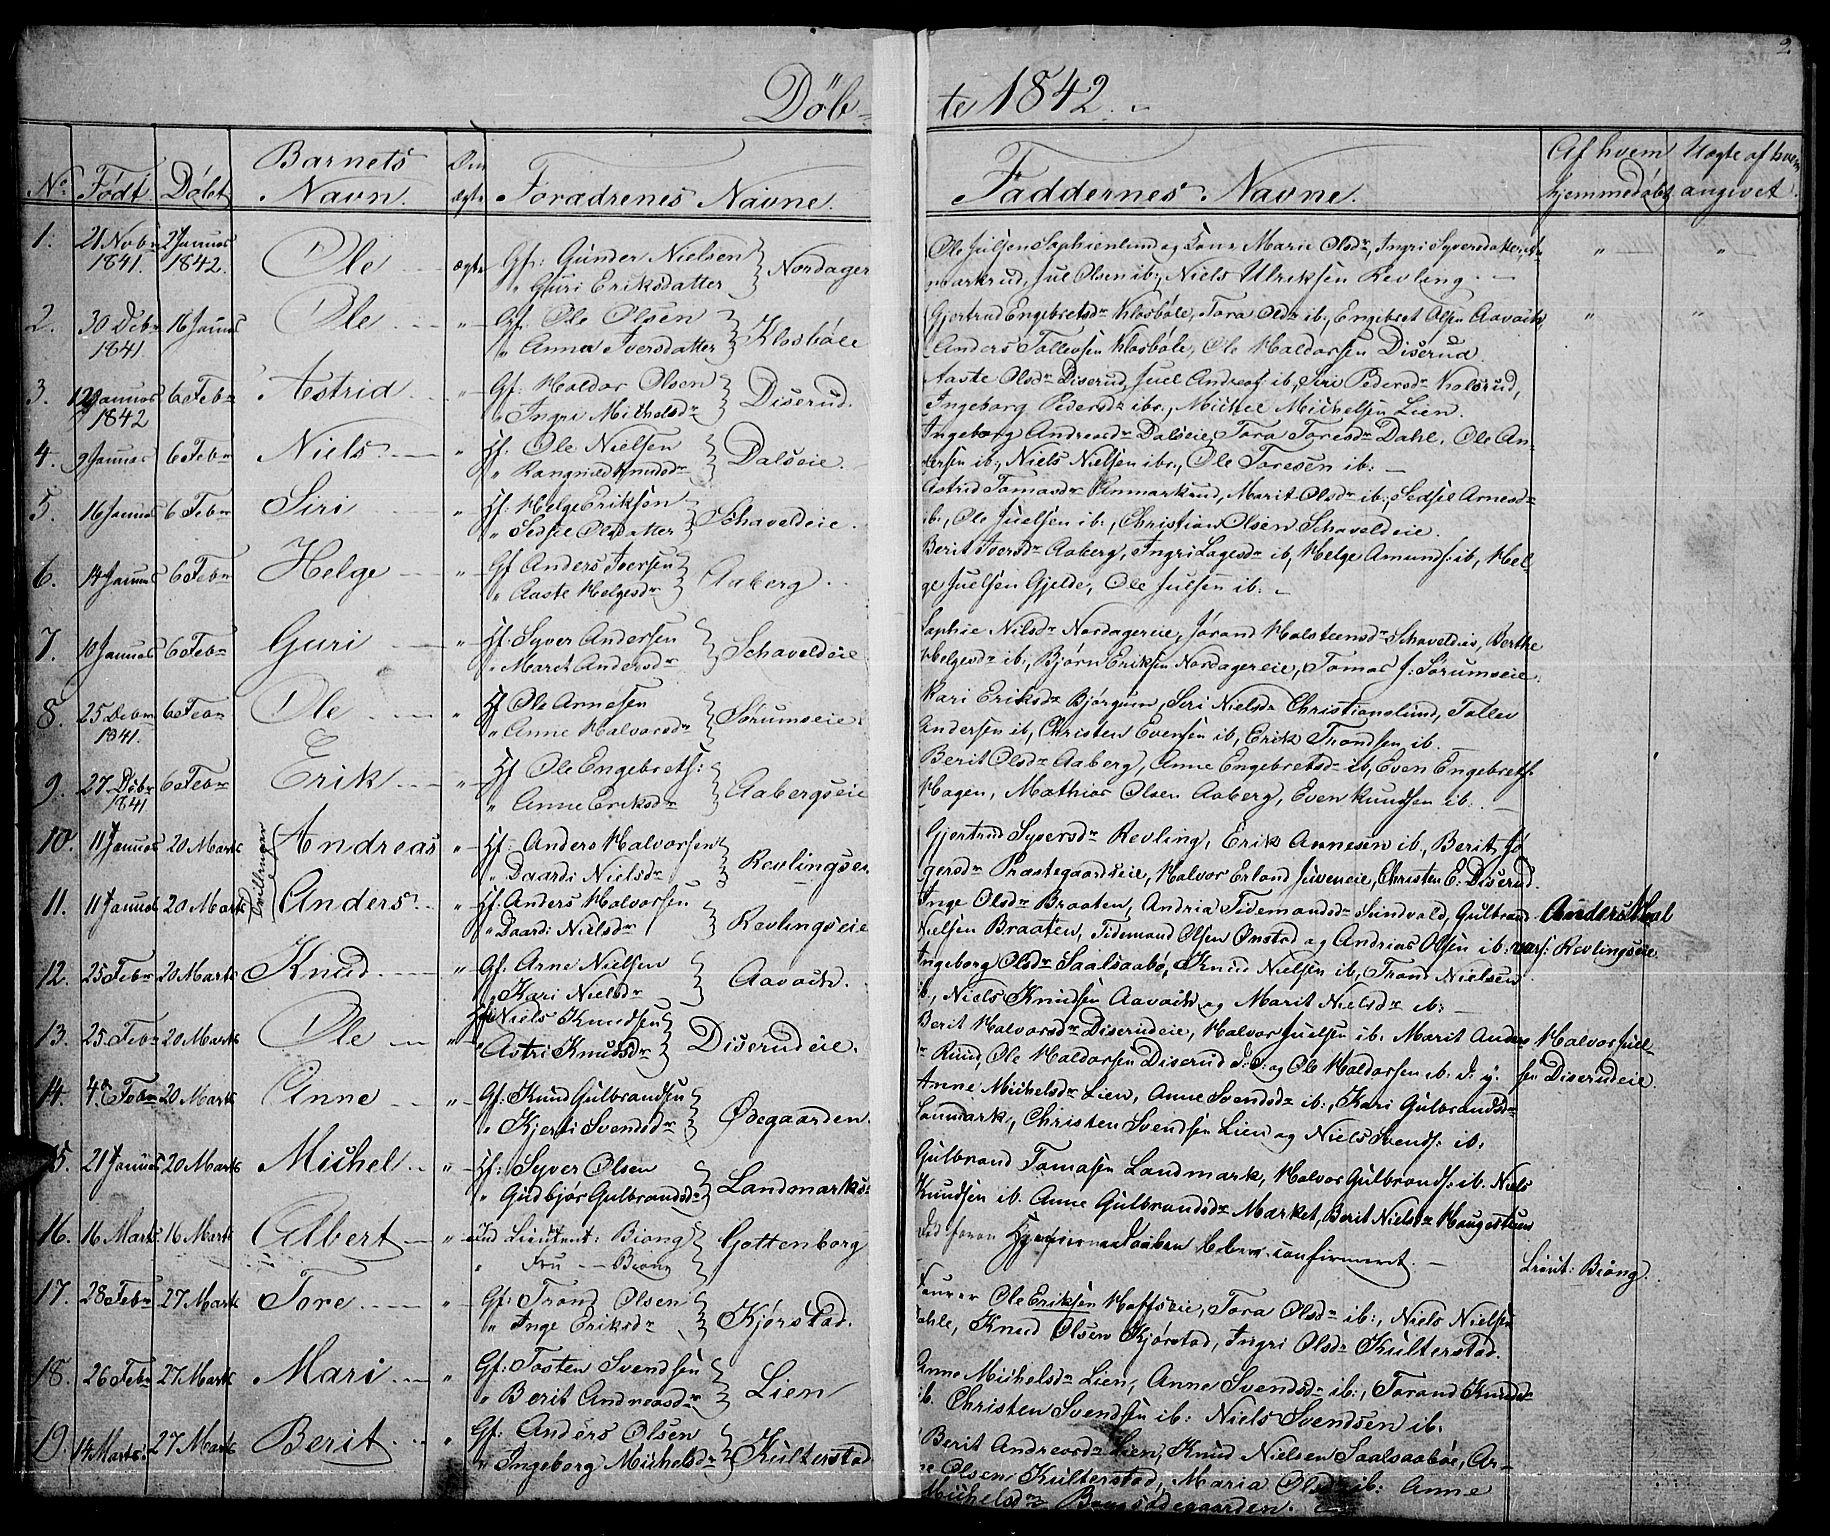 2
Døb- te 1842.
No. Født Døbt Barnets Navn. Om ægte Forældrenes Navne. Faddernes Navne. Af hvem hjemmedøbt Uægte af hvem angivet.
1. 21 Novbr 1841. 2 Januar 1842. Ole ægte Gf: Gunder Nielsen Nordager
" Guri Eriksdatter
Marie Olsdr, Ingri Syversdatter,
markrud, Juel Olsen ib:, Niels Ulriksen Revling
2. 30 Debr 1841. 16 Januar Ole " Gf. Ole Olsen Klosbøle
" Anna Iversdatter
Gjertrud Engebretsdr Klosbøle, Tora Olsdr ib., Engebret Olsen Aavoik,
Anders Tollevsen Klosbøle, Ole Haldorsen Diserud.
3. 12 Januar 1842 6 Febr Astrid " Gf: Haldor Olsen Diserud.
" Ingri Michelsdr
Aaste Olsdr Diserud, Juel Andreas ib, Siri Pedersdr Kolsrud,
Ingeborg Pedersdr ibr., Michel Michelsen Lien.
4. 9 Januar 6 Febr Niels " Hf: Ole Nielsen Dalseie.
" Rangnild Knudsdr
Ingeborg Andreasdr Dalseie, Tora Toresdr Dahl, Ole An-
dersen ib, Niels Nielsen ibr., Ole Toresen ib:
5. 16 Januar 6 Febr Siri " Hf: Helge Eriksen Schaveldeie.
" Sidsel Olsdatter
Astrid Tomasdr Anmarkrud, Marit Olsdr ib:, Sidsel Arnesdr
ib:, Ole Juelsen ib:, Christian Olsen Schaveldeie.
6. 14 Januar 6 Febr Helge " Gf Anders Iversen Aaberg.
" Aaste Helgesdr
Berit Iversdr Aaberg, Ingri Lagesdr ib, Helge Amunds: ib, Hel-
ge Juelsen Gjelde, Ole Julsen ib:
7. 10 Januar 6 Febr Guri " Hf: Syver Andersen Schaveldeie
" Maret Andersdr
Sophie Nilsdr Nordagereie, Jørand Halsteensdr Schaveldeie, Berthe
Helgesdr ib:, Bjørn Eriksen Nordagereie, Tomas J: Sørumseie.
8. 25 Debr 1841. 6 Febr Ole " Hf Ole Annesen Sørumseie
" Anne Halvorsdr
Kari Eriksdr Bjørgum, Seri Nielsdr Christianslund, Tollev
Andersen ib, Christen Evensen ib, Erik Trondsen ib.
9. 27 Debr 1841 6 Febr Erik " Hf Ole Engebrets: Aabergseie
" Anne Eriksdr
Berit Olsdr Aaberg, Anne Engebretsdr ib, Even Engebrets:
Hagen, Mathias Olsen Aaberg, Even Knudsen ib.
10. 11 Januar 20 Marts Tvillinger Andreas " Hf: Anders Halvorsen Revlingseie
" Daardi Nielsdr
Gjertrud Syversdr Revling, Erik Annesen ib, Berit Jø
gersdr Præstegaardseie, Halvor Erland Juveneie, Christen E: Diserud.
11. 11 Januar 20 Marts Anders " Hf: Anders Halvorsen Revlingseie
" Daardi Nielsdr
Inge Olsdr Braaten, Andria Tidemandsdr Sundvold, Gulbrand Anders Hal
Nielsen Braaten, Tidemand Olsen Onstad og Andreas Olsen ib: vors: Revlingseie
12. 25 Febr 20 Marts Knud " Gf: Arne Nielsen Aavoik.
" Kari Nielsdr
Ingeborg Olsdr Saalsaabø, Knud Nielsen ib, Trond Nielsen
ib., Niels Knudsen Aavoik og Marit Nielsdr ib:
13. 25 Febr 20 Marts Ole " Niels Knudsen Diserudeie.
" Astri Knudsdr
Berit Halvorsdr Diserudeie, Halvor Juelsen ib. Marit Anders Halvor Juel-
dr Ruud, Ole Haldorsen Diserud og Ole Haldorsen ib. d: y: sen Diserudeie.
14. 4 Febr 20 Marts Anne " Gf: Knud Gulbrandsen Ødegaarden.
" Kjersti Svendsdr
Anne Michelsdr Lien, Anne Svendsdr ib:, Kari Gulbrandsdr
Landmark, Christen Svendsen Lien og Niels Svends: ib.
15. 21 Januar 20 Marts Michel " Hf: Syver Olsen Landmarks-
" Gudbjør Gulbrandsdr
Gulbrand Tomasen Landmark, Halvor Gulbrands: ib. Niels
Knudsen ib. Anne Gulbrandsdr Market, Berit Nielsdr Haugestuen
16. 16 Marts 16 Marts Albert " Lieutent: Biong Gottenborg
" Fru — Biong
confirmeret. Lieut: Biong.
17. 28 Febr 27 Marts Tore " Gf: Trond Olsen Kjørstad.
" Inge Eriksdr
Ole Eriksen Hoffseie, Tora Olsdr ib:, Niels Nielsen
Dahle, Knud Olsen Kjørstad, Ingri Olsdr Kulterstad.
18. 26 Febr 27 Marts Mari " Gf: Tosten Svendsen Lien
" Berit Andreasdr
Anne Michelsdr Lien, Anne Svendsdr ib:, Torand Knudsdr
ib. Christen Svendsen ib: Niels Svendsen ib.
19. 14 Marts 27 Marts Berit " Gf: Anders Olsen Kulterstad
" Ingeborg Michelsdr
Berit Andreasdr Lien, Knud Nielsen Saalsaabøe, Ar-
ne Olsen Kulterstad, Maria Olsdr ib: Anne
Michelsdr